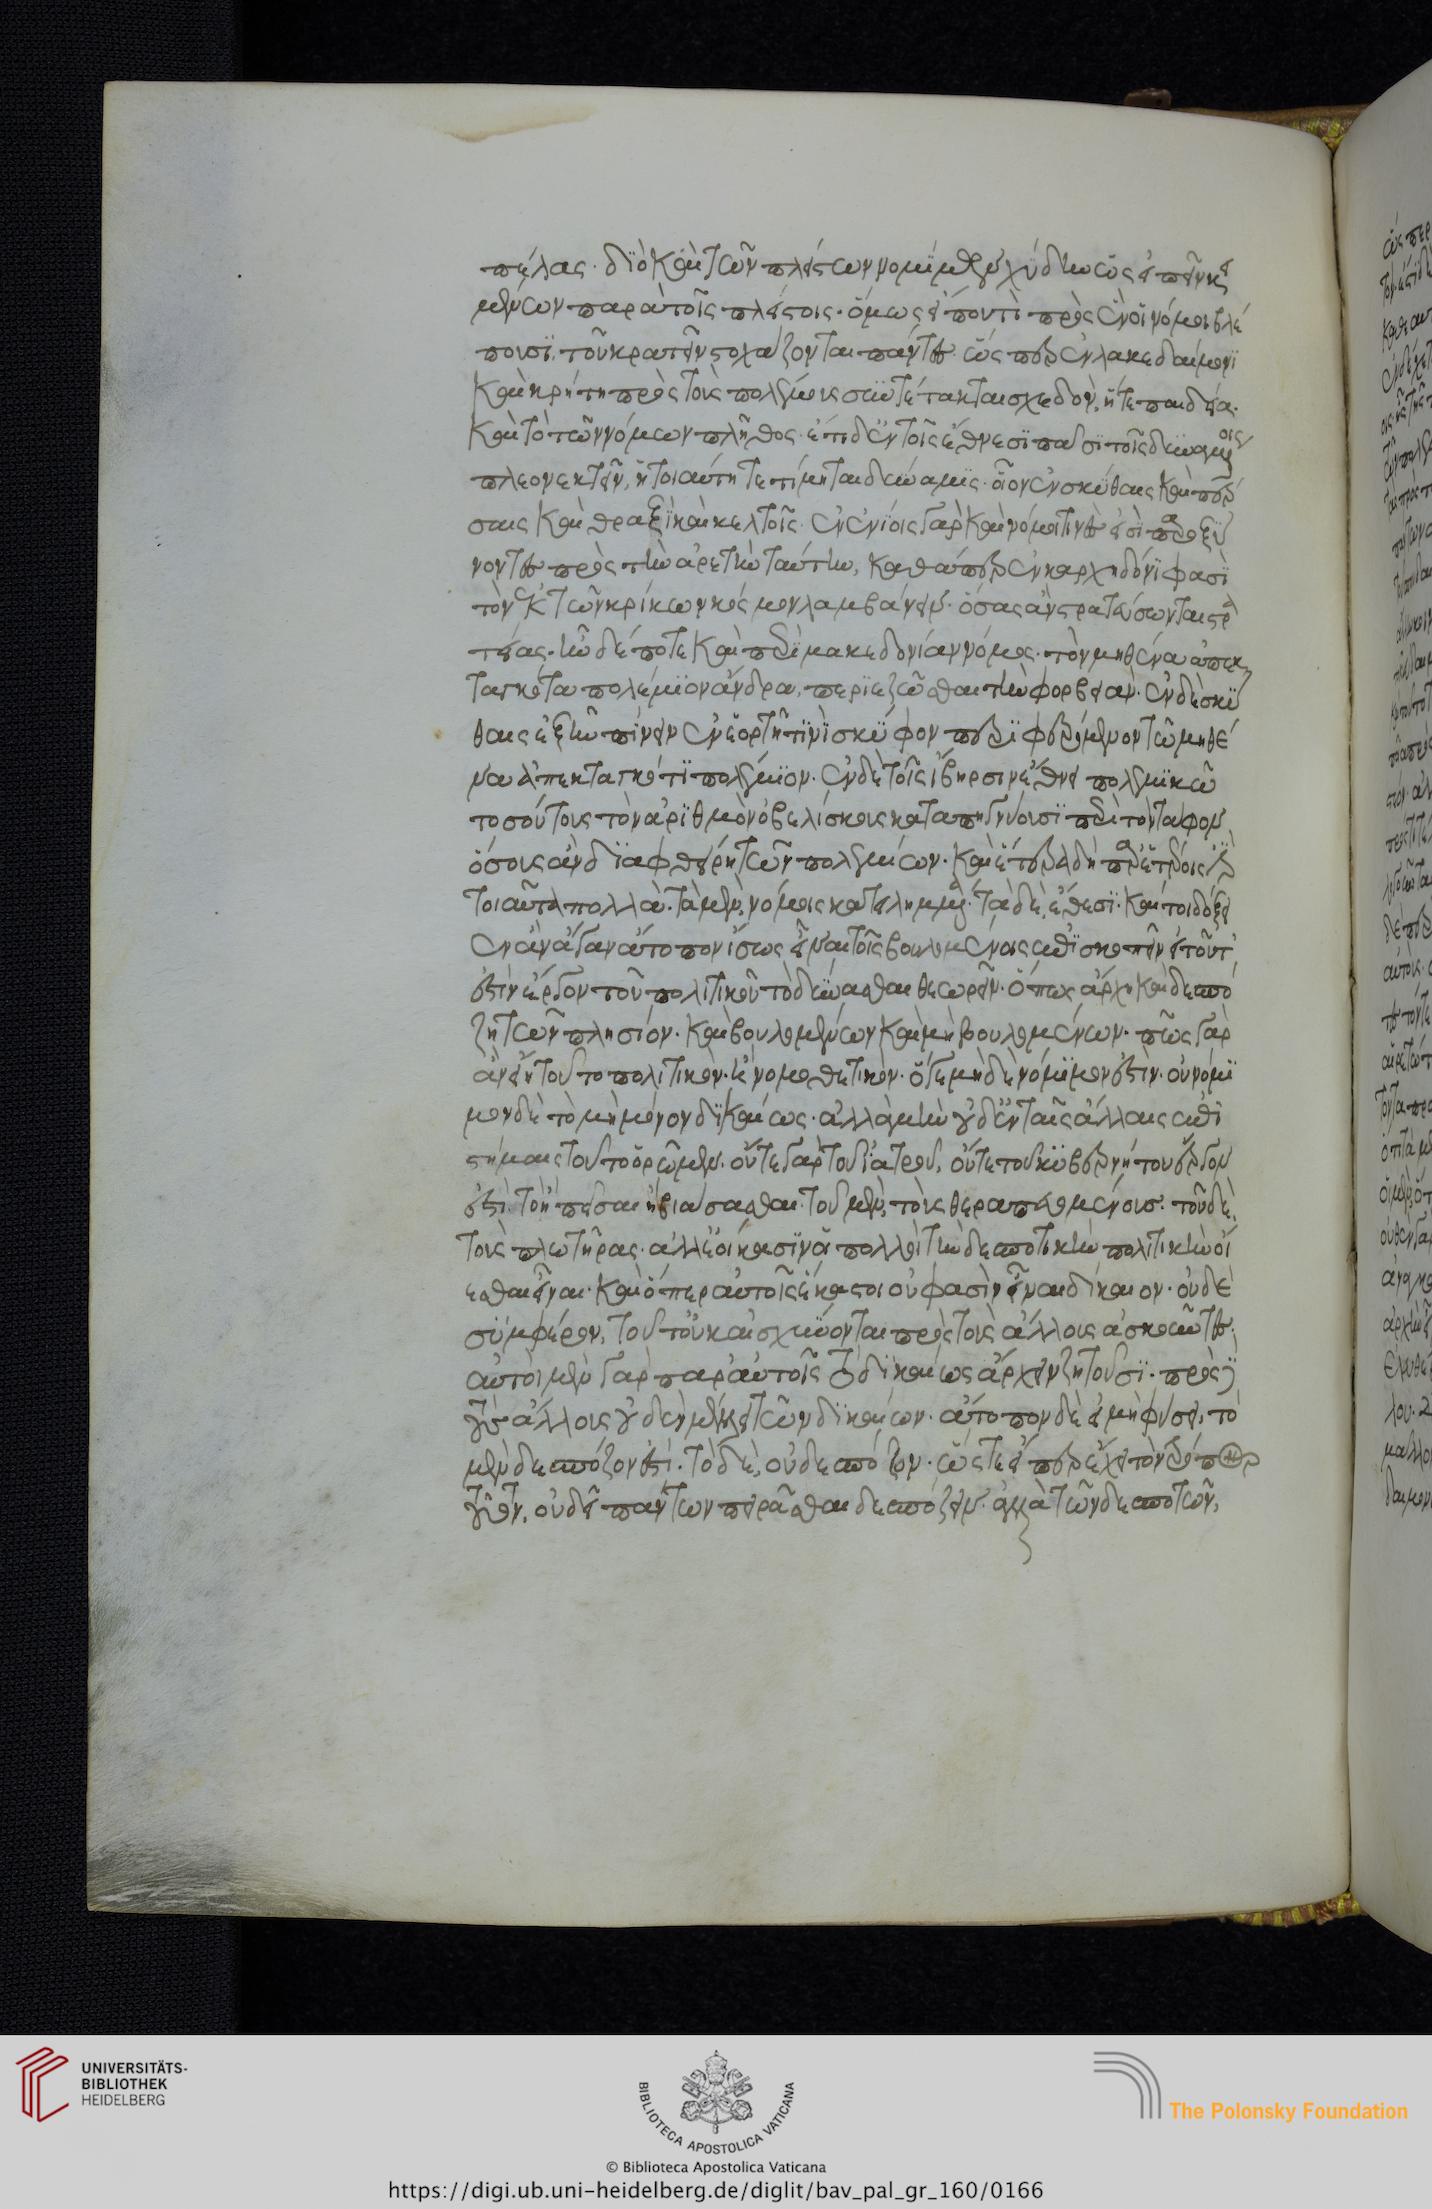 πέλας. διὸ καὶ τῶν πλείστων νομίμων χύδην ὡς εἰπεῖν κει
μένων παρὰ τοῖς πλείστοις. ὅμως εἴ πού τι πρὸς ἓν οἱ νόμοι βλέ
πουσι, τοῦ κρατεῖν στοχάζονται πάντες. ὥσπερ ἐν λακεδαίμονι
καὶ κρήτη πρὸς τοὺς πολέμους συντέτακται σχεδὸν, ἥ τε παιδεία.
καὶ τὸ τῶν νόμων πλῆθος. ἔτι δ' ἐν τοῖς ἔθνεσι πᾶσι τοῖς δυναμένοις
πλεονεκτεῖν, ἡ τοιαύτη τετίμηται δύναμις. οἷον ἐν σκύθαις καὶ πέρ
σαις καὶ θραξὶ καὶ κελτοῖς. ἐν ἐνίοις γὰρ καὶ νόμοι τινές εἰσι παροξύ
νοντες πρὸς τὴν ἀρετὴν ταύτην, καθάπερ ἐν καρχηδόνι φασὶ
τὸν ἐκ τῶν κρίκων κόσμον λαμβάνειν. ὅσας ἂν στρατεύσωνται στρα
τείας. ἦν δέ ποτε καὶ περὶ μακεδονίαν νόμος. τὸν μηθένα ἀπεκ
ταγκότα πολέμιον ἄνδρα, περιεζῶσθαι τὴν φορβειάν. ἐν δὲ σκύ
θαις ἐξῆν πίνειν ἐν ἑορτῇ τινὶ σκύφον περιφερόμενον τῷ μηθέ
να ἀπεκταγκότι πολέμιον. ἐν δὲ τοῖς ἴβηρσιν ἔθνει πολεμικῶ
τοσούτους τὸν ἀριθμὸν ὀβελίσκους καταπηγνύουσι περὶ τὸν τάφον
ὅσους ἂν διαφθείρῃ τῶν πολεμίων. καὶ ἕτερα δὴ παρ' ἑτέροις ἐστὶ
τοιαῦτα πολλὰ. τὰ μὲν, νόμοις κατειλημμένα. τὰ δὲ, ἔθεσι. καίτοι δόξει
ἐν ἂν ἄγαν ἄτοπον ἴσως εἶναι τοῖς βουλομένοις ἐπισκοπεῖν εἰ τοῦτ'
ἐστὶν ἔργον τοῦ πολιτικοῦ τὸ δύνασθαι θεωρεῖν. ὅπως ἄρχη καὶ δεσπό
ζη τῶν πλησίον. καὶ βουλομένων καὶ μὴ βουλομένων. πῶς γὰρ
ἂν εἴη τοῦτο πολιτικὸν. ἢ νομοθετικόν. ὅ γε μηδὲ νόμιμον ἐστὶν. οὐ νόμι
μον δὲ τὸ μὴ μόνον δικαίως. ἀλλὰ μὴν οὐδ' ἐν ταῖς ἄλλαις ἐπι
στήμαις τοῦτο ὁρῶμεν. οὔτε γὰρ τοῦ ἰατροῦ, οὔτε τοῦ κυβερνήτου ἔργον
ἐστὶ. τὸ ἢ πεῖσαι ἢ βιάσασθαι. τοῦ μὲν, τοὺς θεραπευομένους. τοῦ δὲ,
τοὺς πλωτῆρας. ἀλλ' ἐοίκασιν οἱ πολλοὶ τὴν δεσποτικὴν πολιτικὴν οἴ
εσθαι εἶναι. καὶ ὅπερ αὐτοῖς ἕκαστοι οὔ φασιν εἶναι δίκαιον. οὐδὲ
συμφέρον, τοῦτ' οὐκ αἰσχύνονται πρὸς τοὺς ἄλλους ἀσκοῦντες.
αὐτοὶ μὲν γὰρ παρ' αὐτοῖς τὸ δικαίως ἄρχειν ζητοῦσι. πρὸς δὲ
τοὺς ἄλλους οὐδὲν μέλει τῶν δικαίων. ἄτοπον δὲ εἰ μὴ φύσει, τὸ
μὲν δεσπόζον ἐστί. τὸ δὲ, οὐ δεσπόζον. ὥστε εἴπερ ἔχει τὸν τρόπον
τοῦτον, οὐ δεῖ πάντων πειρᾶσθαι δεσπόζειν. ἀλλὰ τῶν δεσποτῶν,
UNIVERSITÄTS-
BIBLIOTHEK
HEIDELBERG
BIBLIOTECA APOSTOLICA VATICANA
© Biblioteca Apostolica Vaticana
The Polonsky Foundation
https://digi.ub.uni-heidelberg.de/diglit/bav_pal_gr_160/0166